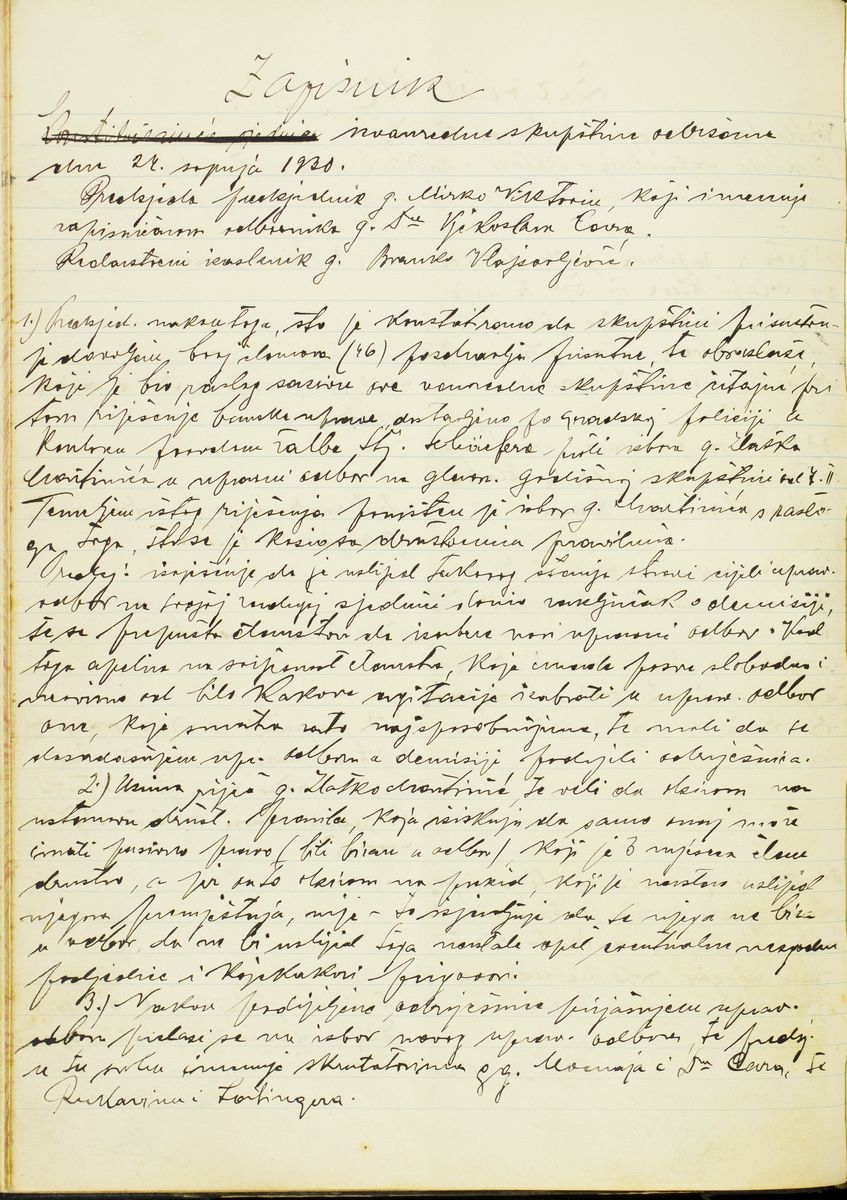 Zapisnik
izvanredne skupštine održane
dne 24. srpnja 1930.
Predsjeda predsjednik g. Mirko Viktorin, koji imenuje
zapisničarom odbornika g. Dra Vjekoslava Cara.
Redarstveni izaslanik g. Branko Vlajsavljević.
1.) Predsjed. nakon toga, što je konstatirano da skupštini prisustvu-
je dovoljan broj članova (46) pozdravlja prisutne, te obrazlaže,
koji je bio razlog sazivu ove vanredne skupštine čitajući pri
tom riješenje banske uprave, dostavljeno po gradskoj policiji a
povodom žalbe Stj. Schäefera proti izbora g. Zlatka
Martinića u upravni odbor na glavn. godišnjoj skupštini od 7. II
Temeljem istog riješenja poništen je izbor g. Martinića s razlo-
ga toga, što se je kosio sa društvenim pravilima.
Predsj. da je uslijed takovog stanja stvari cijeli uprav.
odbor na svojoj zadnjoj sjednici donio zaključak o demisiji,
te se prepušta članstvu da izabere novi upravni odbor. Kod
toga apelira na svijesnost članstva, koje imade posve slobodno i
neovisno od bilo kakove agitacije izabrati u uprav. odbor
one, koje smatra zato najsposobnijima, te moli da se
dosadašnjem upr. odboru a demisiji podijeli odrješnica.
2.) Uzima riječ g. Zlatko Martinić, te veli da obzirom na
ustanovu društ. pravila, koja iziskuju da samo onaj može
imati pasivno pravo (biti biran u odbor), koji je 3 mjeseca član
društva, a jer on to obzirom na prekid, koji je nastao uslijed
njegova premještaja, nije – to izjavljuje da se njega ne bira
u odbor, da ne bi uslijed toga nastale opet eventualne
posljedice i kojekakovi prigovori.
3.) Nakon podijeljene odrješnice prijašnjem uprav.
odboru prelazi se na izbor novog uprav. odbora, te predsj.
u tu svrhu imenuje skrutatorima gg. i Dra Cara, te
Rukavinu i Tortingera.